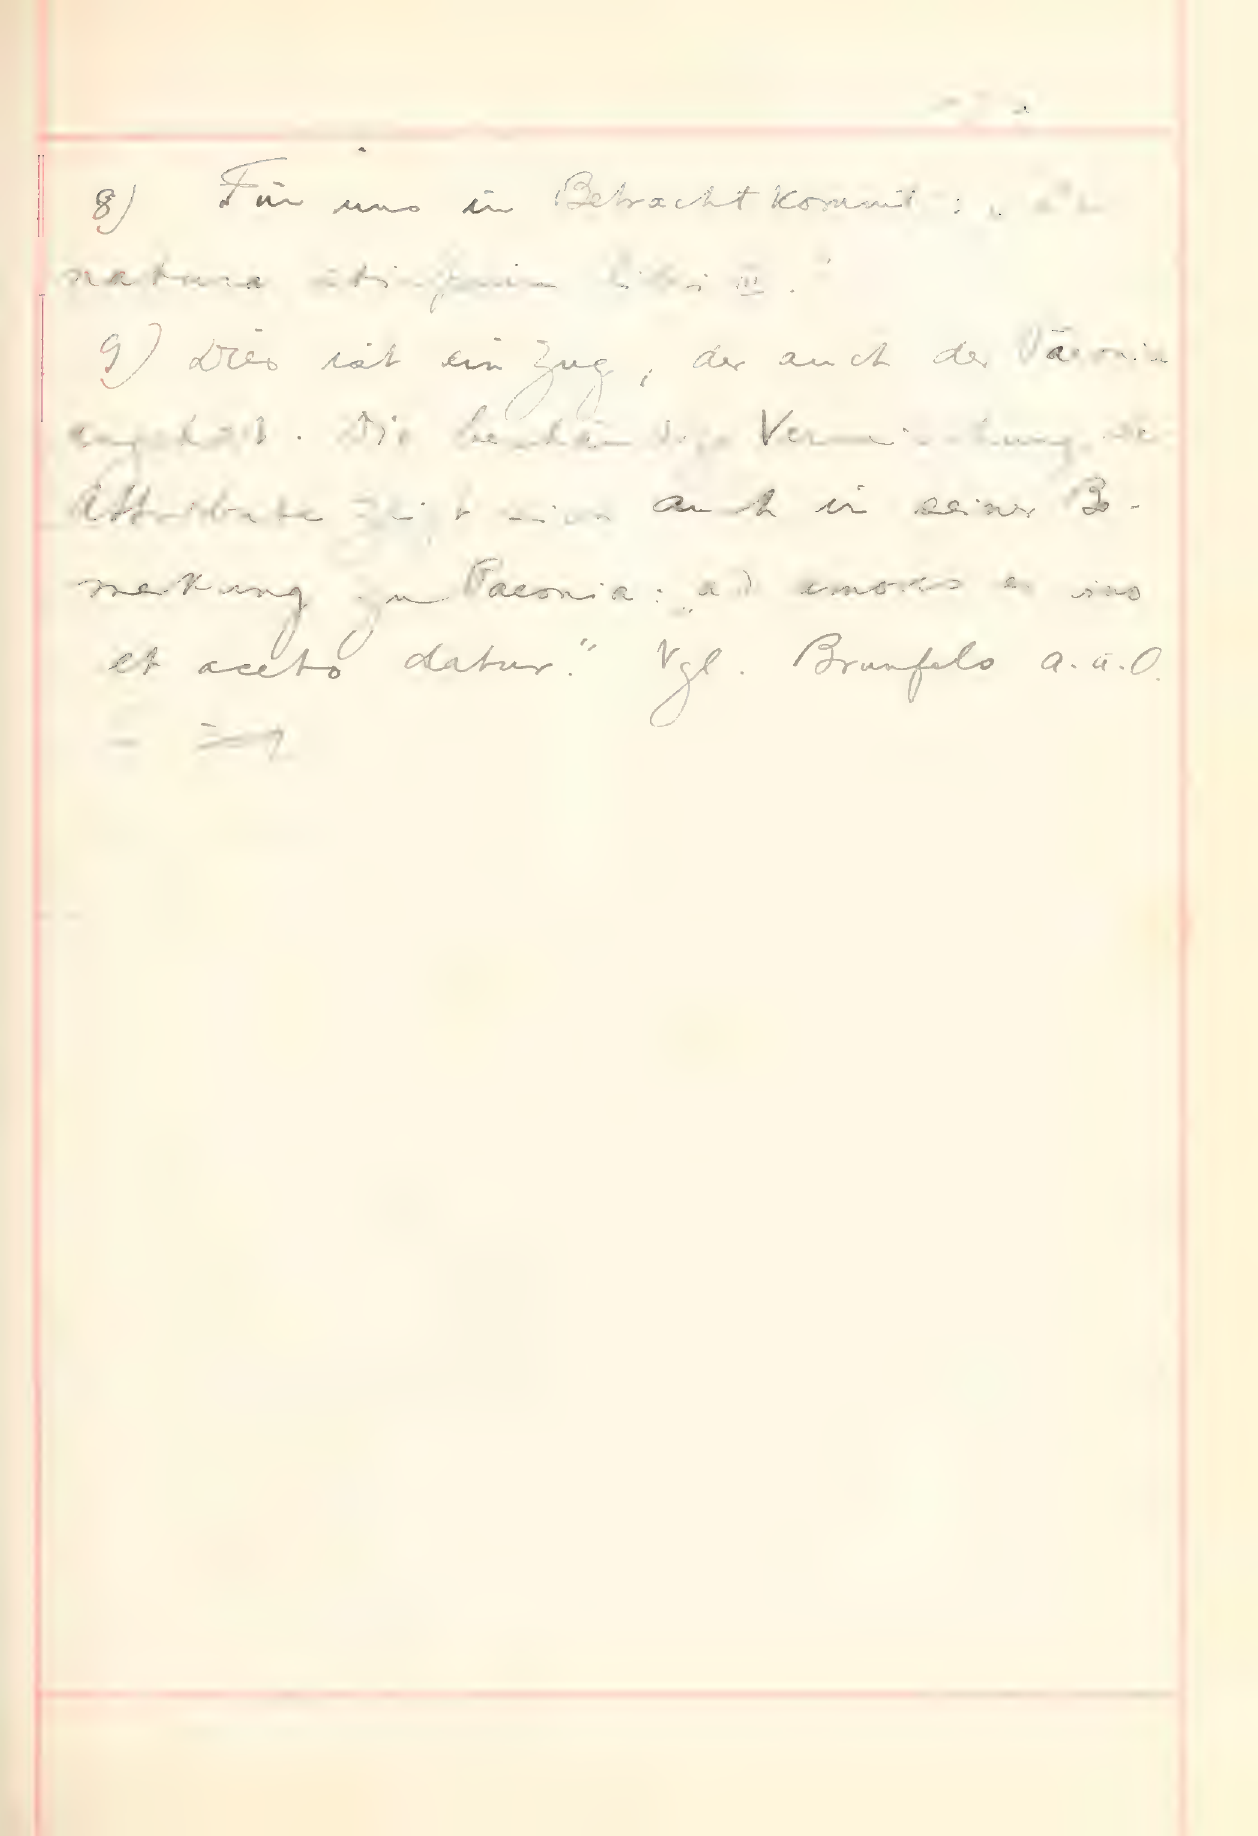 8) Für uns in Betracht kommt: „de
natura stirpium libri III."
9) Dies ist ein Zug, der auch der Päonia
angehört. Die beständige Vermischung der
Attribute zeigt sich auch in seiner Be-
merkung zu Paeonia: „ad
et aceto datur." Vgl. Brunfels a.a.O.